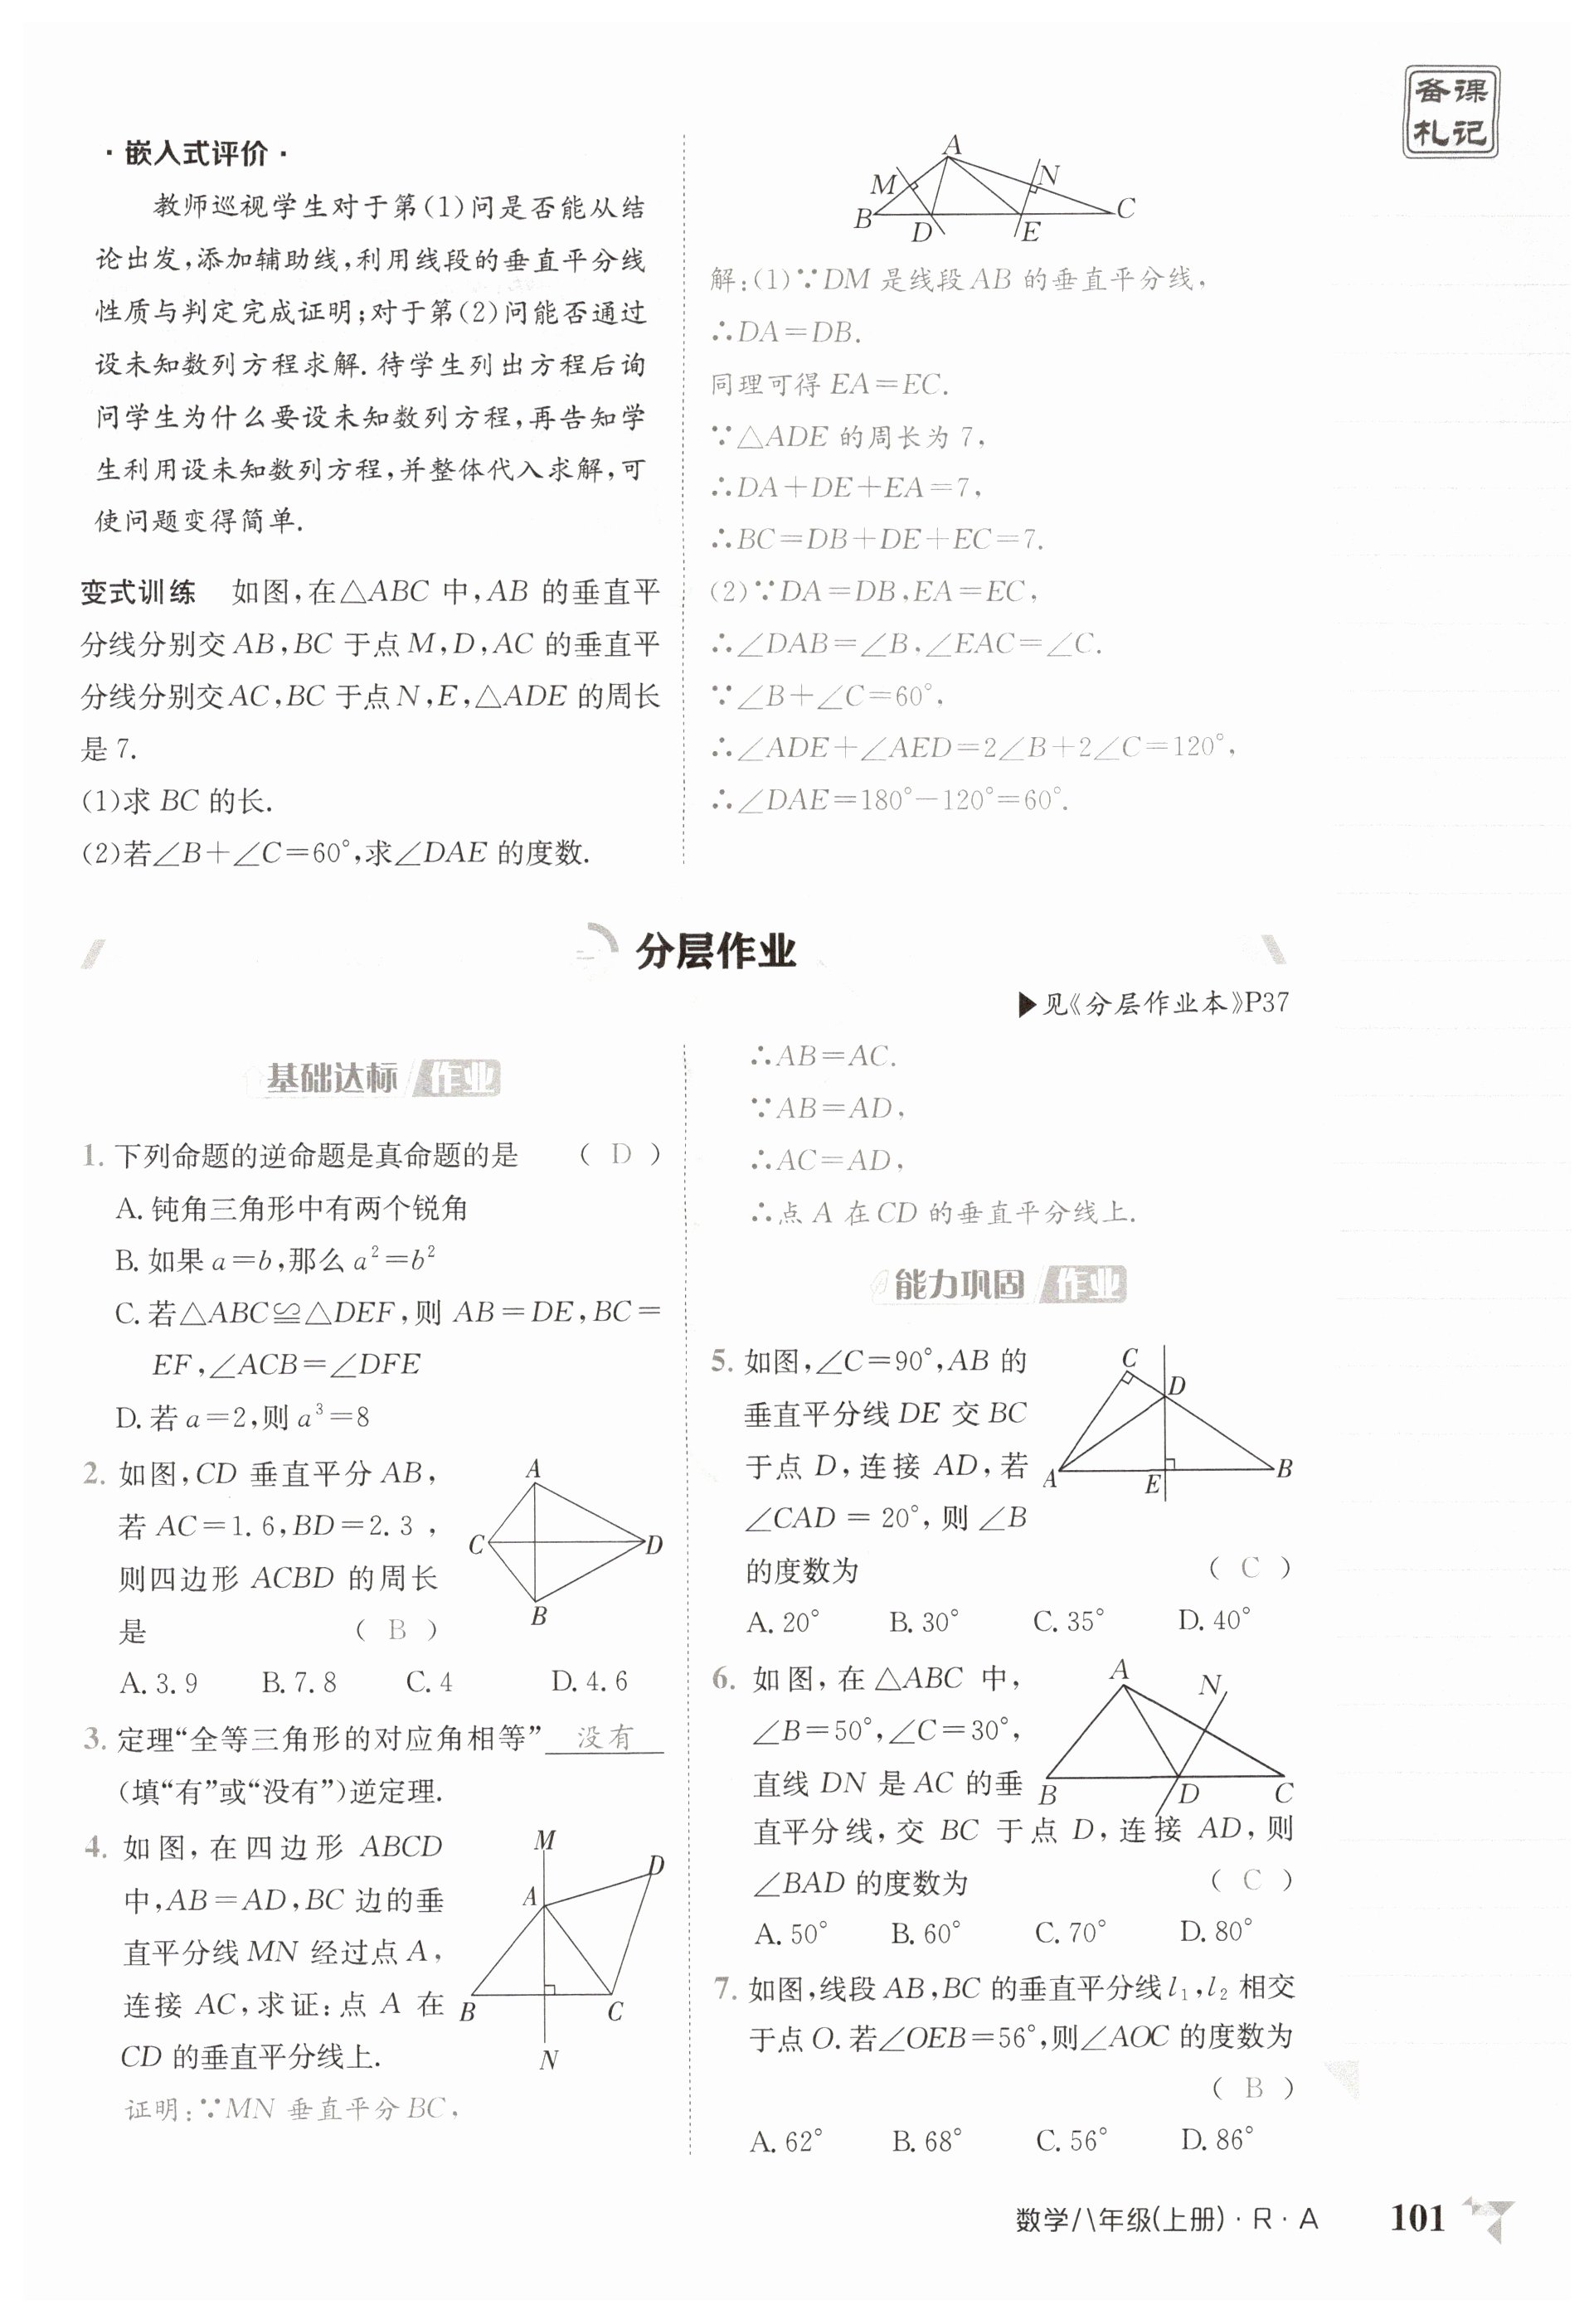 备课
札记
·嵌入式评价·
教师巡视学生对于第(1)问是否能从结
论出发,添加辅助线,利用线段的垂直平分线
性质与判定完成证明;对于第(2)问能否通过
设未知数列方程求解.待学生列出方程后询
问学生为什么要设未知数列方程,再告知学
生利用设未知数列方程,并整体代入求解,可
使问题变得简单.
变式训练 如图,在△ABC 中,AB 的垂直平
分线分别交 AB,BC 于点 M,D,AC 的垂直平
分线分别交 AC,BC 于点 N,E,△ADE 的周长
是 7.
(1)求 BC 的长.
(2)若∠B+∠C=60°,求∠DAE 的度数.
A
M
N
B
C
D
E
解:(1)∵DM 是线段 AB 的垂直平分线,
∴DA=DB.
同理可得 EA=EC.
∵△ADE 的周长为 7,
∴DA+DE+EA=7,
∴BC=DB+DE+EC=7.
(2)∵DA=DB,EA=EC,
∴∠DAB=∠B,∠EAC=∠C.
∵∠B+∠C=60°,
∴∠ADE+∠AED=2∠B+2∠C=120°,
∴∠DAE=180°-120°=60°.
分层作业
▶见《分层作业本》P37
基础达标 作业
1. 下列命题的逆命题是真命题的是 ( D )
A. 钝角三角形中有两个锐角
B. 如果 a=b,那么 a²=b²
C. 若△ABC≌△DEF,则 AB=DE,BC=
EF,∠ACB=∠DFE
D. 若 a=2,则 a³=8
2. 如图,CD 垂直平分 AB,
若 AC=1.6,BD=2.3,
则四边形 ACBD 的周长
是 ( B )
A
C
D
B
A. 3.9 B. 7.8 C. 4 D. 4.6
3. 定理“全等三角形的对应角相等” 没有
(填“有”或“没有”)逆定理.
4. 如图,在四边形 ABCD
中,AB=AD,BC 边的垂
直平分线 MN 经过点 A,
连接 AC,求证:点 A 在
CD 的垂直平分线上.
M
D
A
B
C
N
证明:∵MN 垂直平分 BC,
∴AB=AC.
∵AB=AD,
∴AC=AD,
∴点 A 在 CD 的垂直平分线上.
能力巩固 作业
5. 如图,∠C=90°,AB 的
垂直平分线 DE 交 BC
于点 D,连接 AD,若
∠CAD=20°,则∠B
的度数为 ( C )
C
D
A
E
B
A. 20° B. 30° C. 35° D. 40°
6. 如图,在△ABC 中,
∠B=50°,∠C=30°,
直线 DN 是 AC 的垂
直平分线,交 BC 于点 D,连接 AD,则
∠BAD 的度数为 ( C )
A
N
B
D
C
A. 50° B. 60° C. 70° D. 80°
7. 如图,线段 AB,BC 的垂直平分线 l₁,l₂ 相交
于点 O. 若∠OEB=56°,则∠AOC 的度数为
( B )
A. 62° B. 68° C. 56° D. 86°
数学八年级(上册)·R·A 101